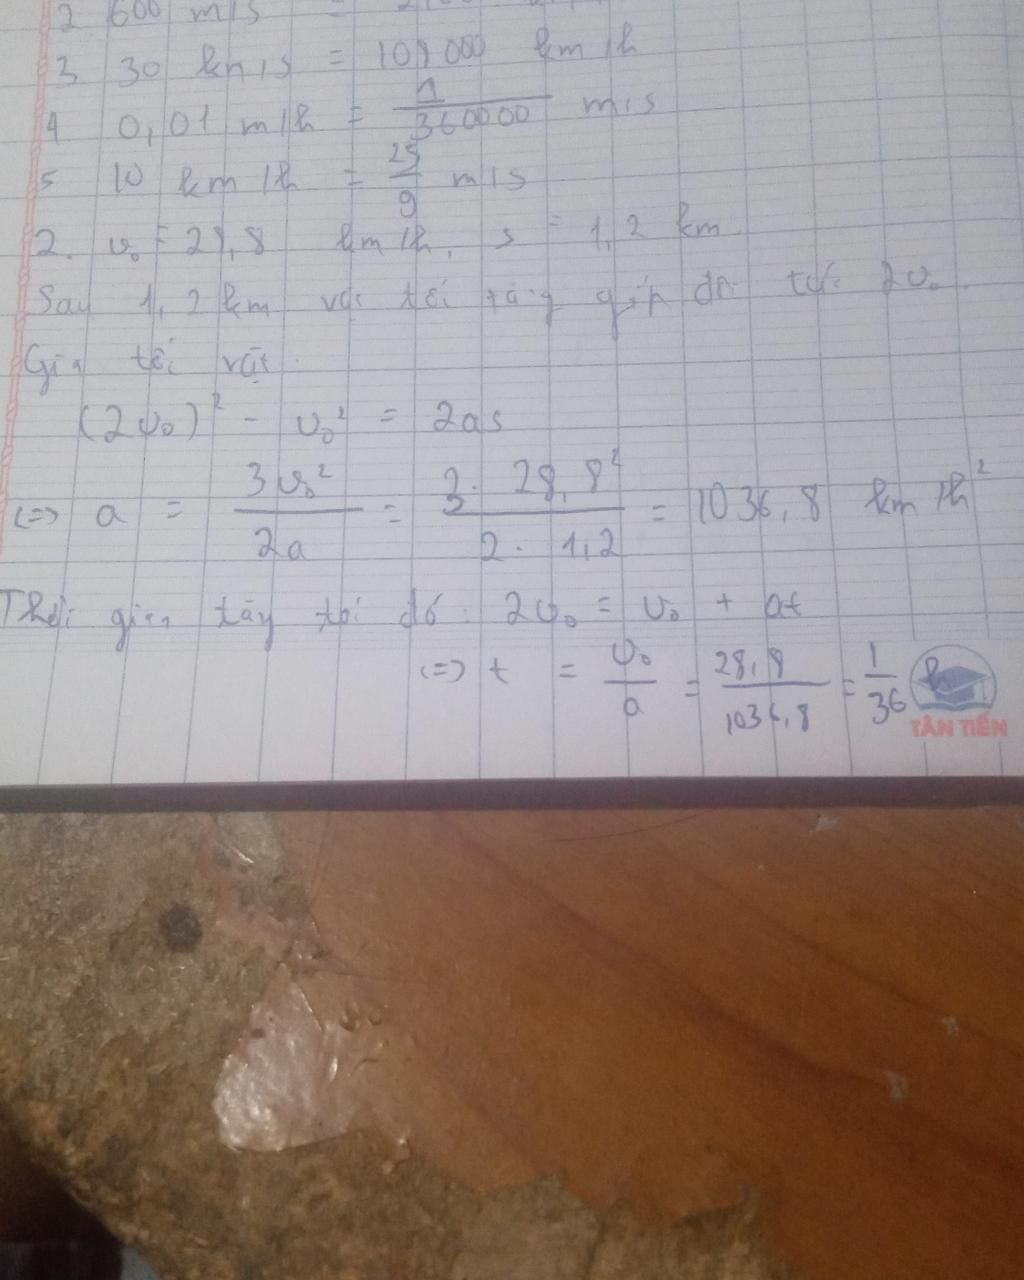 2 600 m/s =
3 30 km/s = 108000 km/h
4 0,01 m/h = 1/360000 m/s
5 10 km/h = 25/9 m/s
2. v₀ = 28,8 km/h, s = 1,2 km
Sau 1,2 km vận tốc tăng gấp đôi tức 2v₀
Gia tốc vật:
(2v₀)² - v₀² = 2as
<=> a = 3v₀²/2a = 3. 28,8²/2. 1,2 = 1036,8 km/h²
Thời gian tăng tốc đó: 2v₀ = v₀ + at
<=> t = v₀/a = 28,8/1036,8 = 1/36 h
TÂN TIẾN